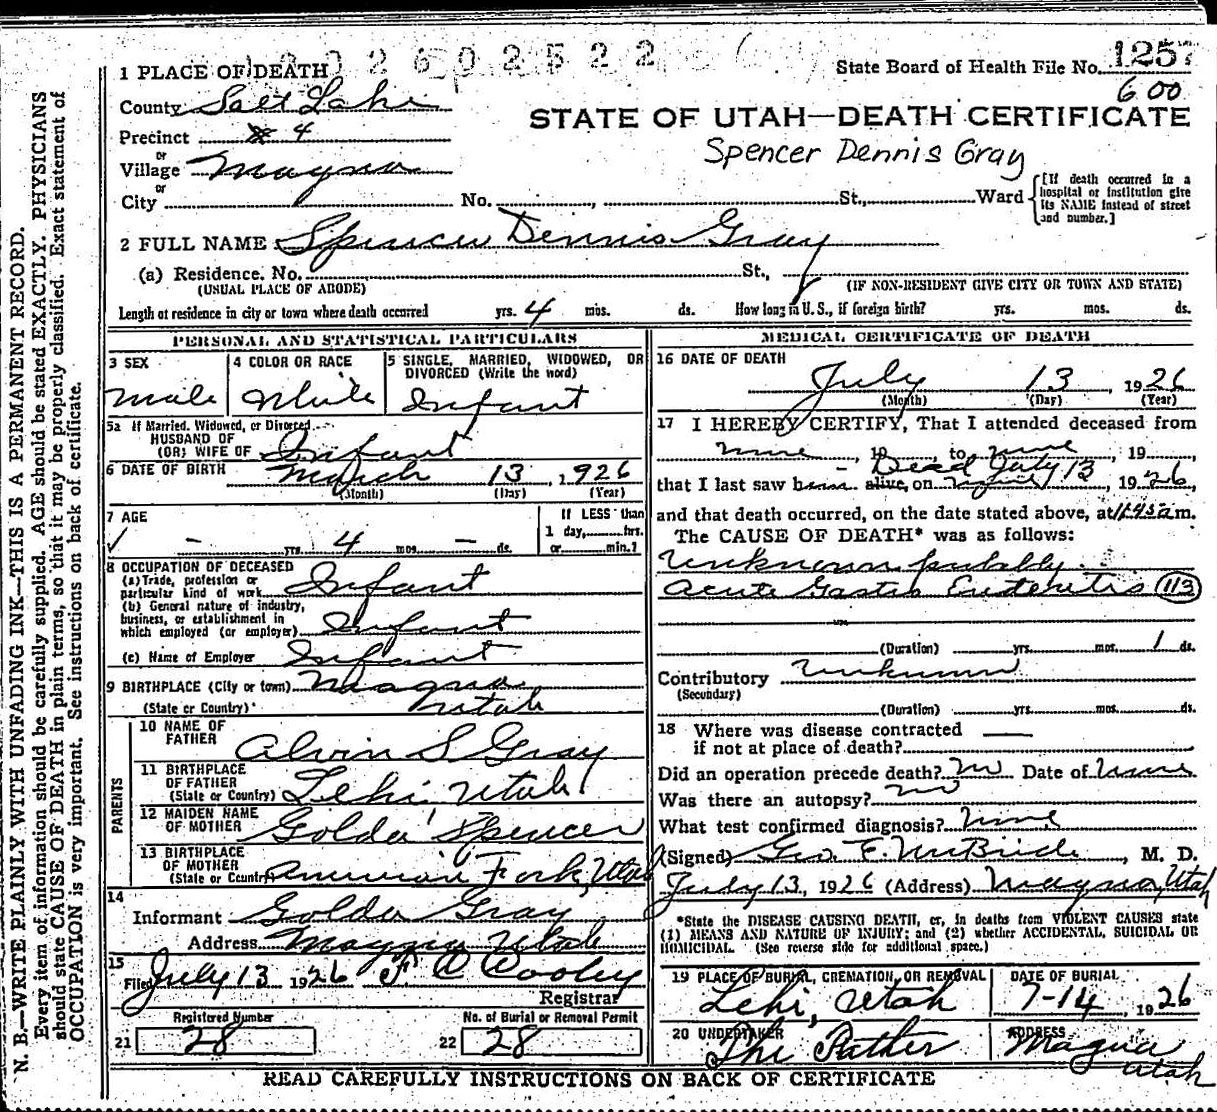 N. B.—WRITE PLAINLY WITH UNFADING INK—THIS IS A PERMANENT RECORD.
Every item of information should be carefully supplied. AGE should be stated EXACTLY. PHYSICIANS
should state CAUSE OF DEATH in plain terms, so that it may be properly classified. Exact statement of
OCCUPATION is very important. See instructions on back of certificate.
26 02522
1 PLACE OF DEATH
State Board of Health File No. 1257
600
County Salt Lake
STATE OF UTAH—DEATH CERTIFICATE
Precinct 4
Spencer Dennis Gray
or
Village Magna
or
City No. St., Ward
[If death occurred in a hospital or institution give its NAME instead of street and number.]
2 FULL NAME Spencer Dennis Gray
(a) Residence. No. St.,
(USUAL PLACE OF ABODE) (IF NON-RESIDENT GIVE CITY OR TOWN AND STATE)
Length of residence in city or town where death occurred yrs. 4 mos. ds. How long in U. S., if foreign birth? yrs. mos. ds.
PERSONAL AND STATISTICAL PARTICULARS
3 SEX
Male
4 COLOR OR RACE
White
5 SINGLE, MARRIED, WIDOWED, OR
DIVORCED (Write the word)
Infant
5a If Married, Widowed, or Divorced
HUSBAND OF
(OR) WIFE OF Infant
6 DATE OF BIRTH March 13, 1926
(Month) (Day) (Year)
7 AGE
✓ - yrs. 4 mos. - ds.
If LESS than
1 day, hrs.
or min.?
8 OCCUPATION OF DECEASED
(a) Trade, profession or
particular kind of work Infant
(b) General nature of industry,
business, or establishment in
which employed (or employer) Infant
(c) Name of Employer Infant
9 BIRTHPLACE (City or town) Magna
(State or Country) Utah
PARENTS
10 NAME OF
FATHER Alvin S Gray
11 BIRTHPLACE
OF FATHER
(State or Country) Lehi Utah
12 MAIDEN NAME
OF MOTHER Golda Spencer
13 BIRTHPLACE
OF MOTHER
(State or Country) American Fork, Utah
14
Informant Golda Gray
Address Magna Utah
15
Filed July 13 1926 F. A Cooley
Registrar
Registered Number
21 28
No. of Burial or Removal Permit
22 28
MEDICAL CERTIFICATE OF DEATH
16 DATE OF DEATH
July 13, 1926
(Month) (Day) (Year)
17 I HEREBY CERTIFY, That I attended deceased from
none, 19, to none, 19
- Dead July 13
that I last saw h alive, on , 1926,
and that death occurred, on the date stated above, at 11:45 a m.
The CAUSE OF DEATH* was as follows:
Unknown probably
Acute Gastro Enteritis 113
(Duration) yrs. mos. 1 ds.
Contributory Unknown
(Secondary)
(Duration) yrs. mos. ds.
18 Where was disease contracted
if not at place of death?
Did an operation precede death? No Date of None
Was there an autopsy? No
What test confirmed diagnosis? None
(Signed) Geo. E. McBride, M. D.
July 13, 1926 (Address) Magna, Utah
*State the DISEASE CAUSING DEATH, or, in deaths from VIOLENT CAUSES state
(1) MEANS AND NATURE OF INJURY; and (2) whether ACCIDENTAL, SUICIDAL OR
HOMICIDAL. (See reverse side for additional space.)
19 PLACE OF BURIAL, CREMATION, OR REMOVAL
Lehi, Utah
DATE OF BURIAL
7-14, 1926
20 UNDERTAKER
The Father
ADDRESS
Magna
Utah
READ CAREFULLY INSTRUCTIONS ON BACK OF CERTIFICATE